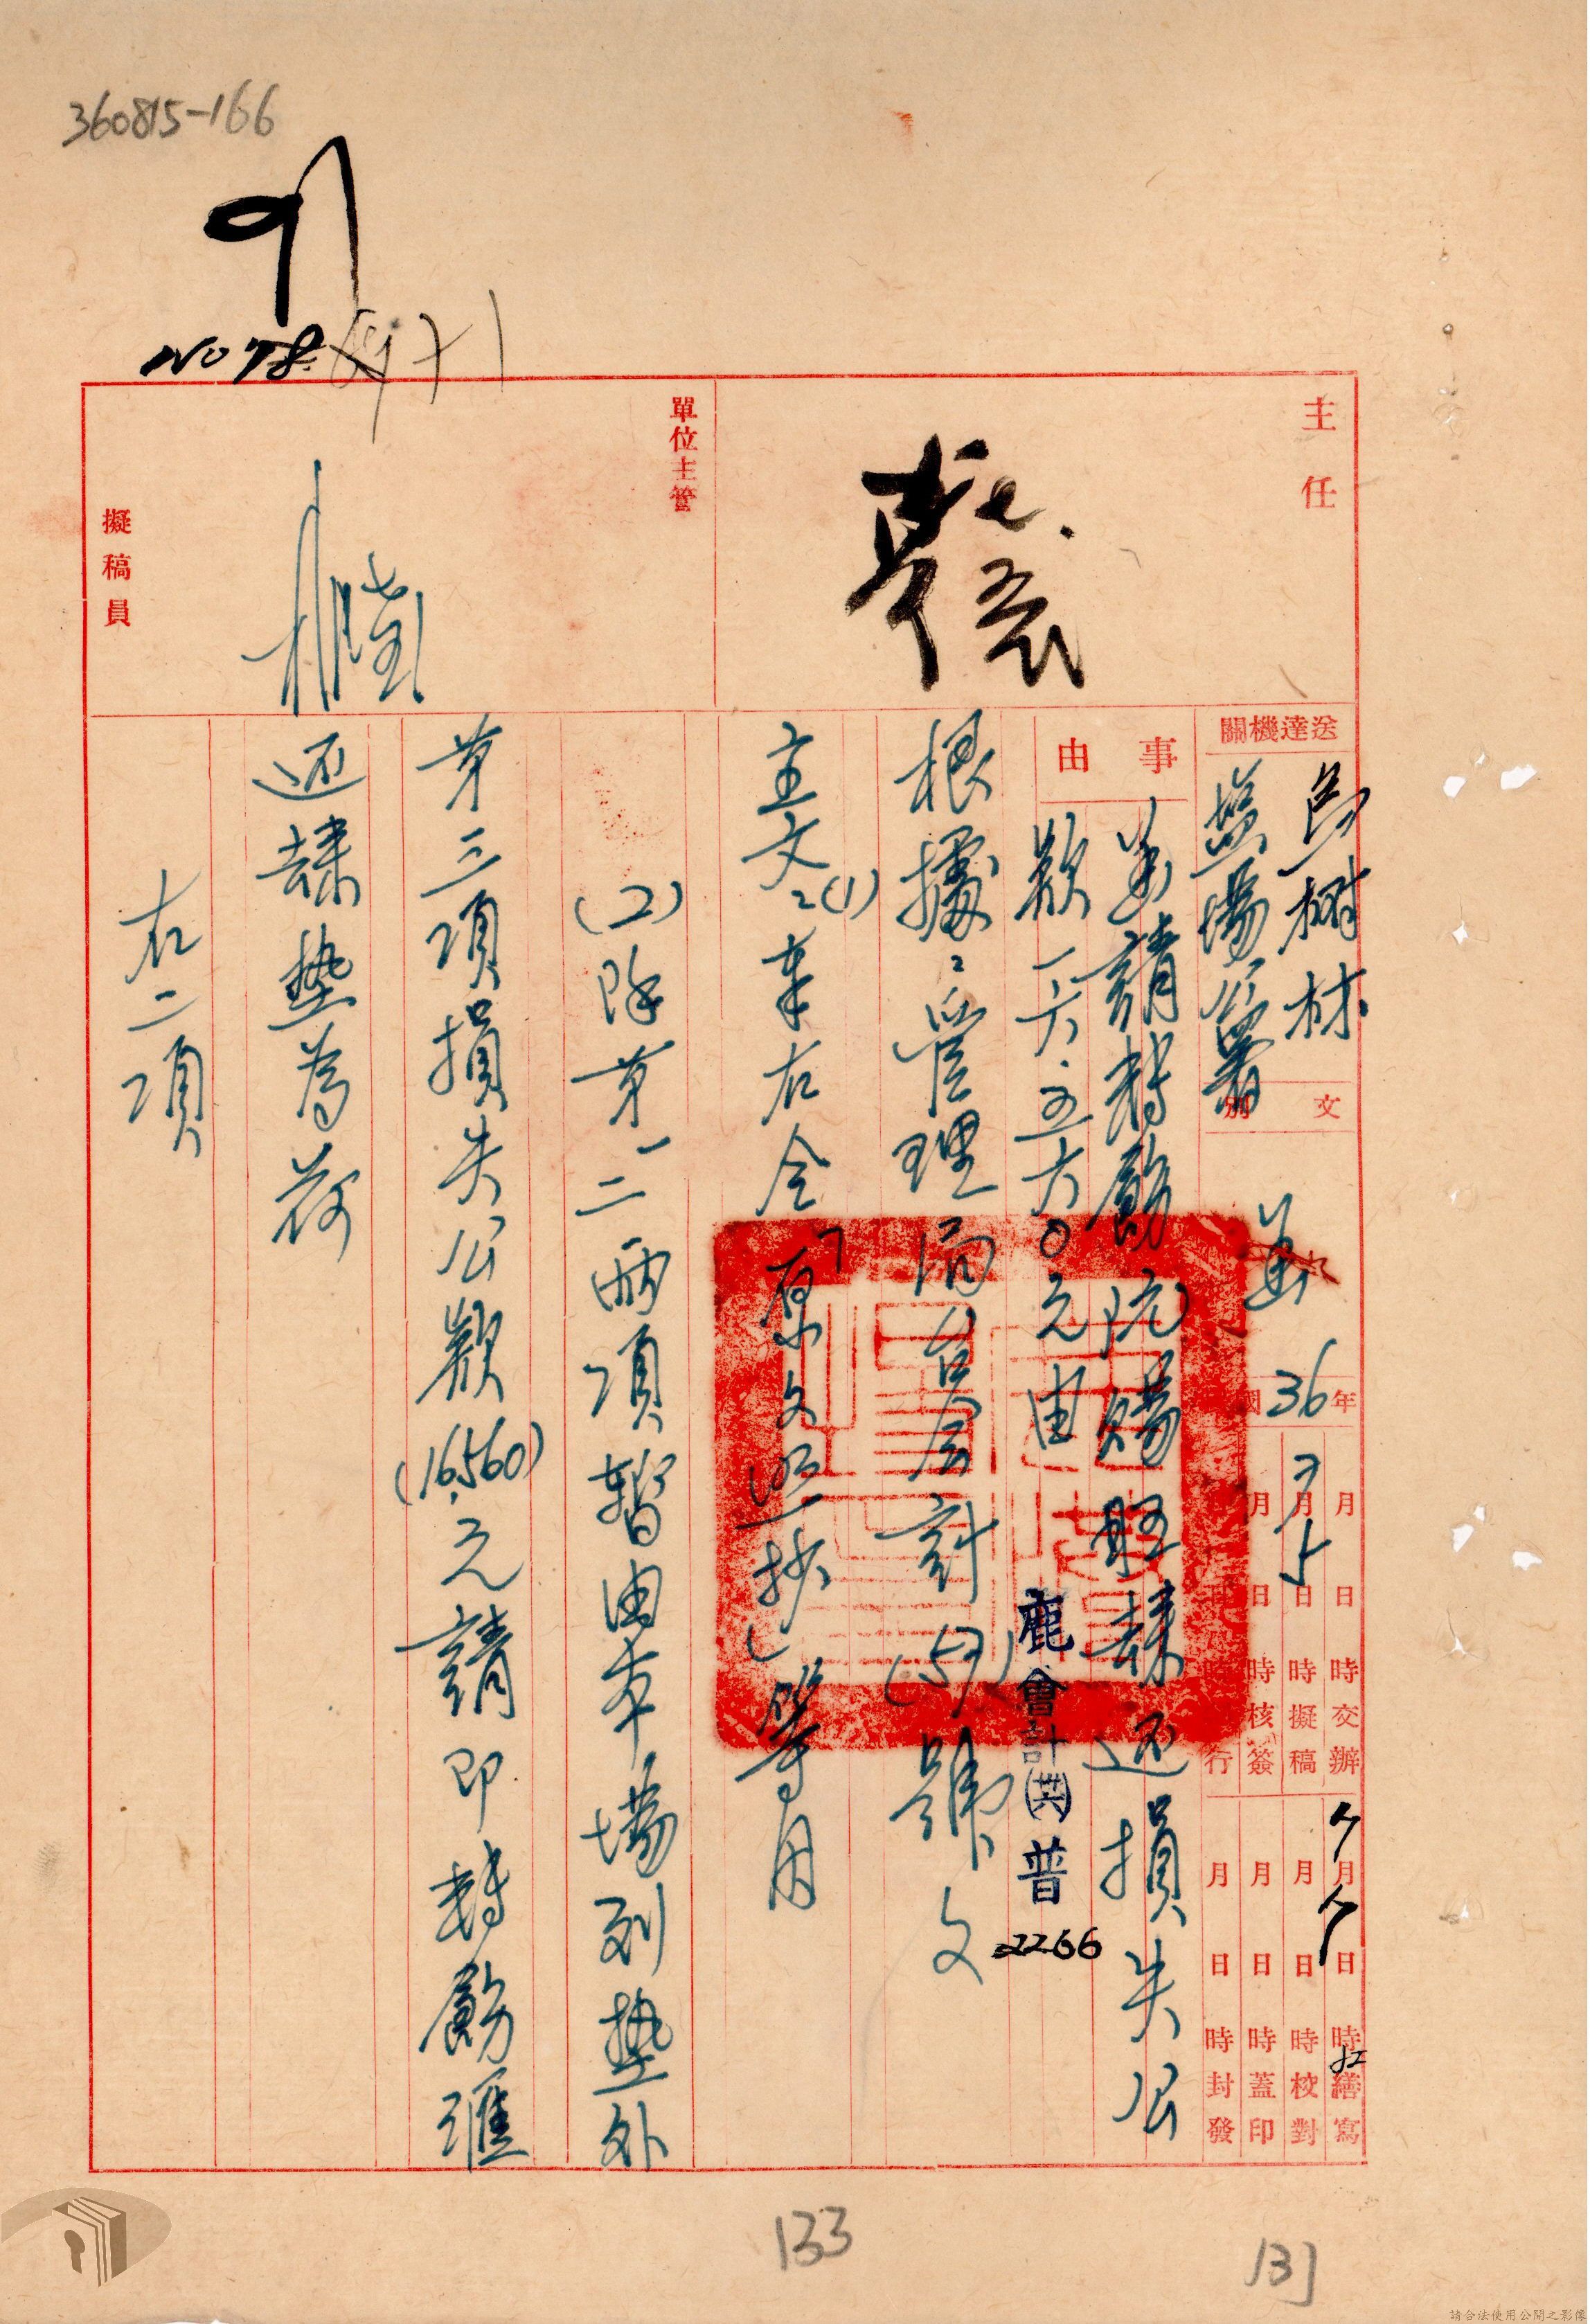 360815-166
NO 78.
主任
單位主管
擬稿員
送達機關
烏樹林
鹽場公署
文別
函
36年
月 日 時交辦
月 日 時擬稿
月 日 時核簽
月 日 時繕寫
月 日 時校對
月 日 時蓋印
月 日 時封發
事由
函請轉飭阮賜經隸還損失公
款一六.五六〇元由
鹿會計(卅六)普
2266
根據:管理局台層計(57)號文
主文:(1)奉右令「原文照抄」等因
(2)除第一二兩項暫由本場列墊外
第三項損失公款(16,560)元請即轉飭匯
還隸墊為荷
右二項
133
請合法使用公開之影像